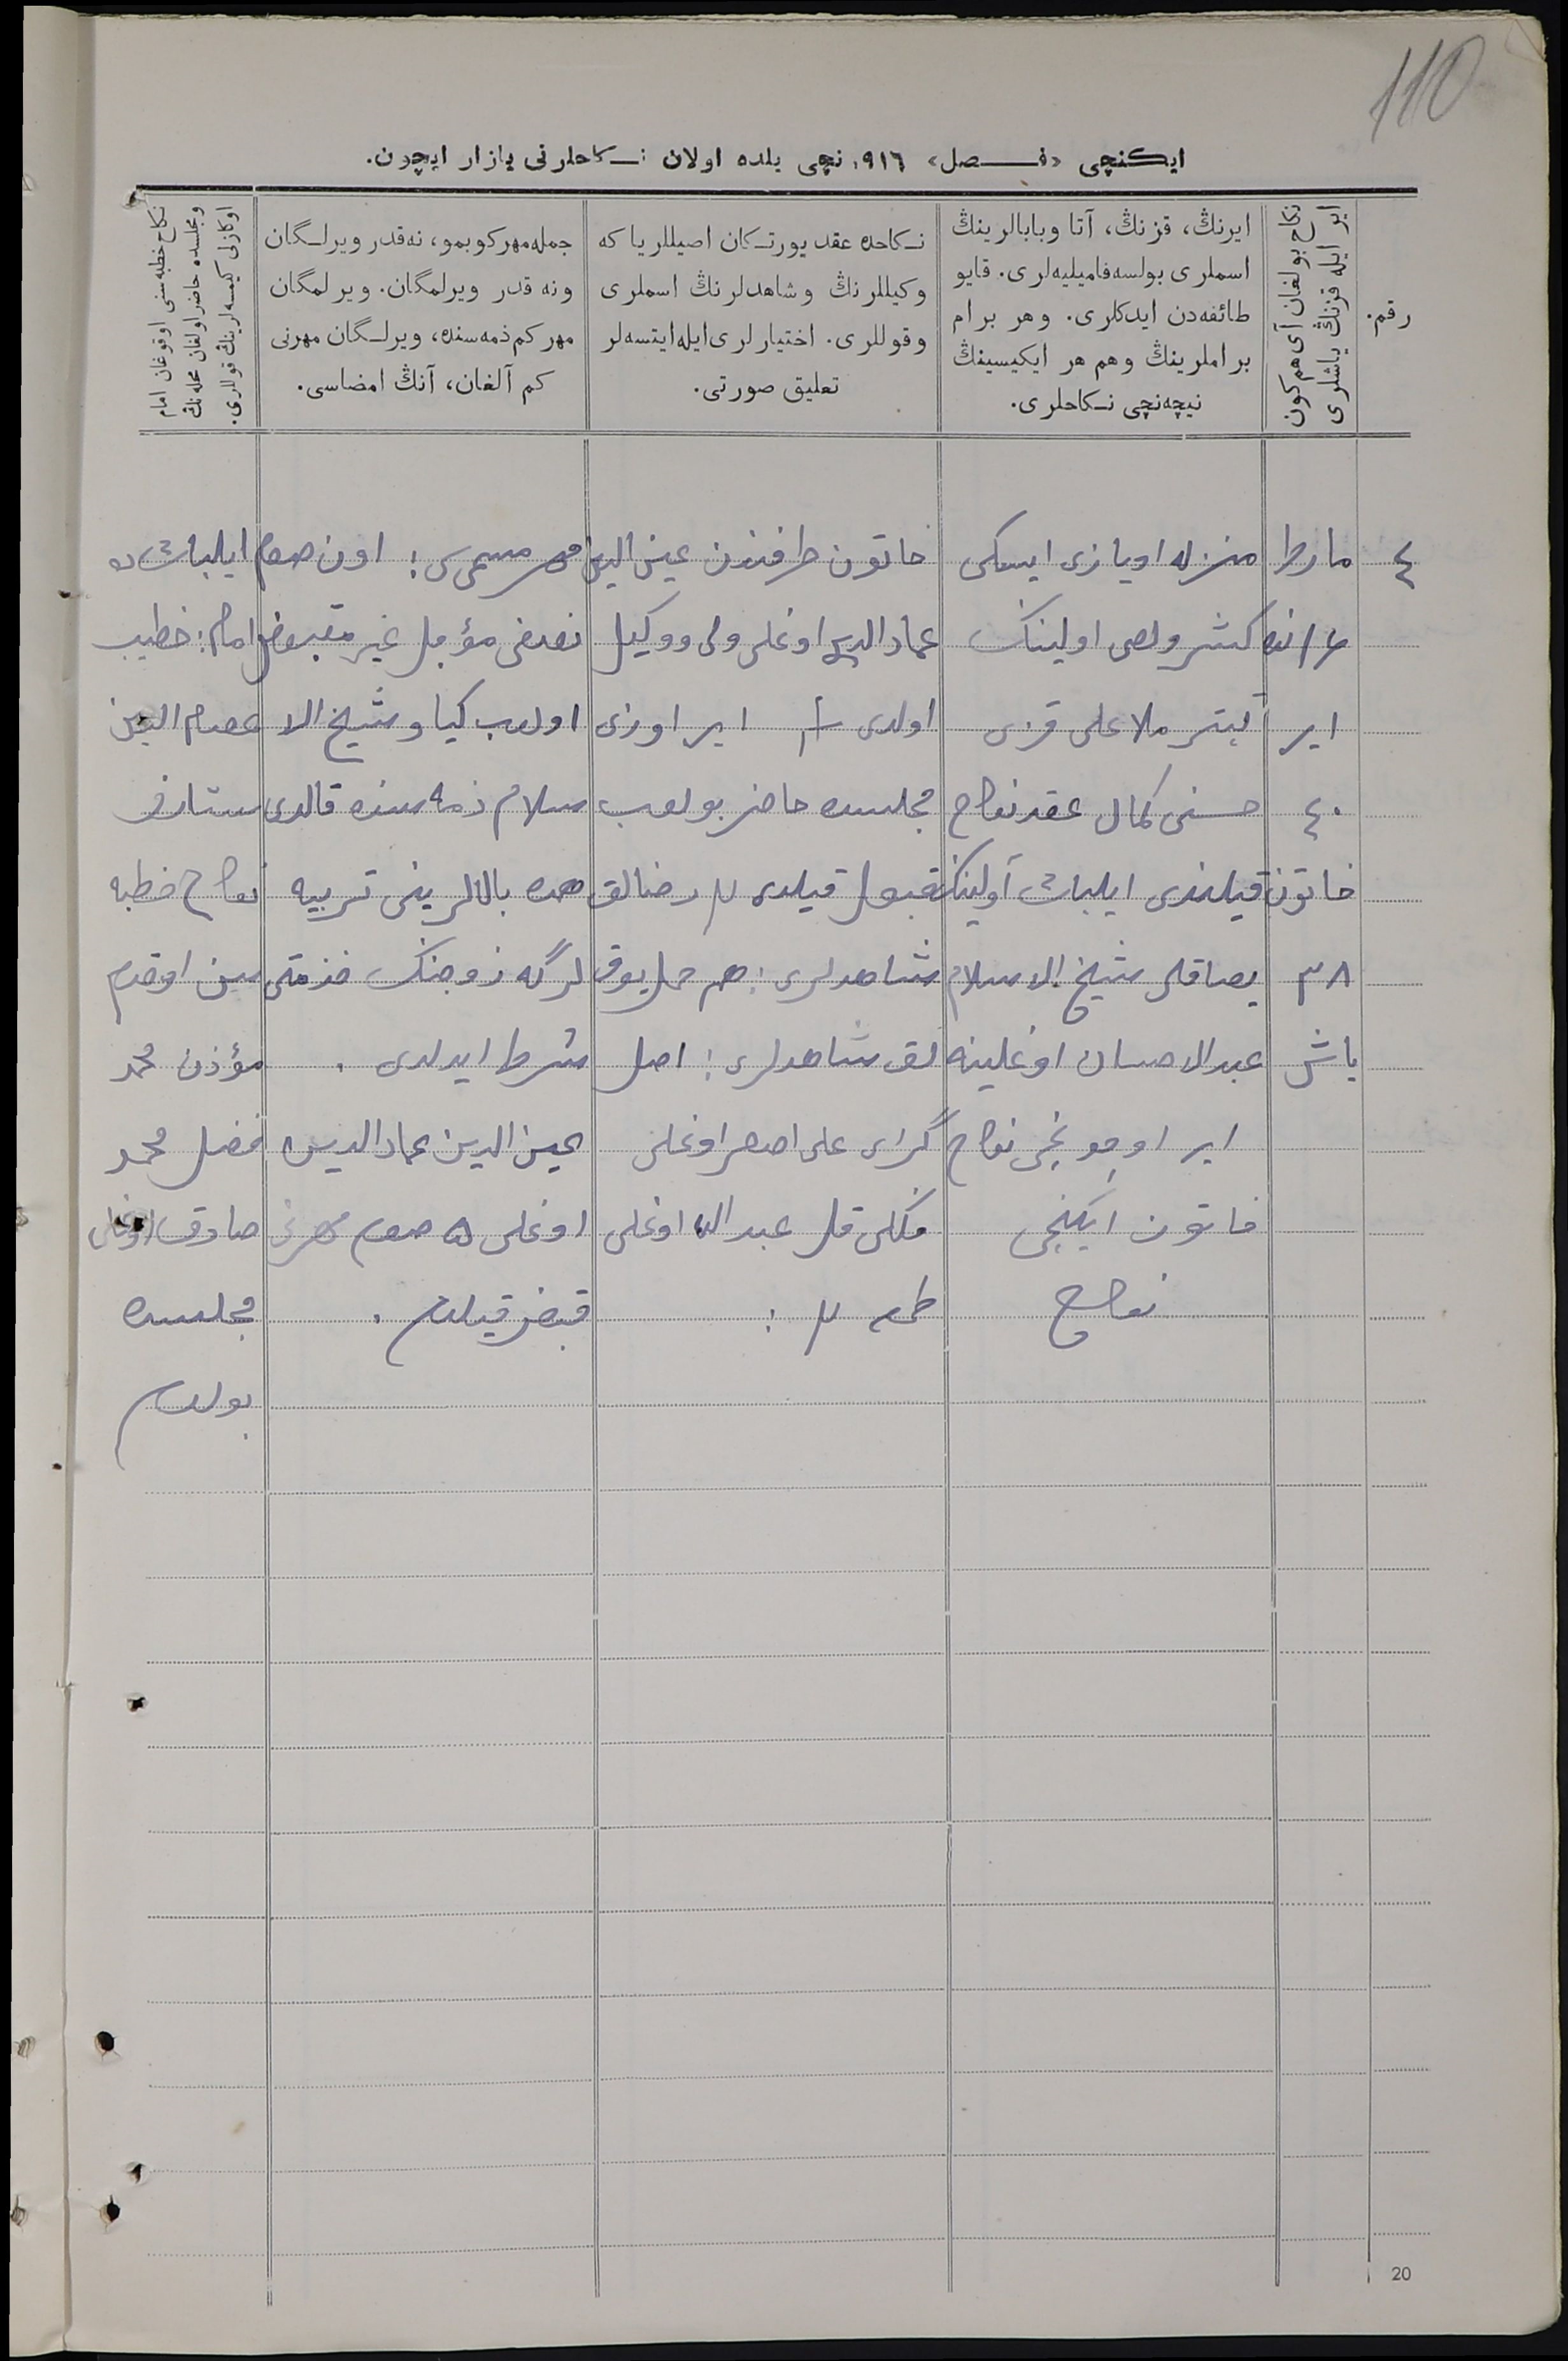 110
ایكنچی «فـصل» ١٩١٦ نچی یلده اولان نـكاحلرنی یازار ایچون.
رقم.
نكاح بولغان آی هم كون
ایر ایله قزنڭ یاشلری
ایرنڭ، قزنڭ، آتا وبابالرینڭ
اسملری بولسه فامیلیه‌لری. قایو
طائفه‌دن ایدكلری. وهر برام
براملرینڭ وهم هر ایكیسینڭ
نیچه‌نچی نـكاحلری.
نـكاحده عقد یورتـكان اصیللر یا كه
وكیللرنڭ وشاهدلرنڭ اسملری
وقوللری. اختیارلری ایله ایتسه‌لر
تعلیق صورتی.
جمله مهر كوبمو، نه‌قدر ویرلـگان
ونه قدر ویرلمگان. ویرلمگان
مهر كم ذمه‌سنده، ویرلـگان مهرنی
كم آلغان، آنڭ امضاسی.
نكاح خطبه‌سنی اوقوغان امام
ومجلسده حاضر اولغان محله‌نڭ
اوكازلی كیمسه‌لرینڭ قوللری.
٤
مارط
ایر
٤٠
خاتون
٣٨
یاش
منزله اویازی ایسكی
اولینڭ
ملا علی قزی
حسنی كمال عقد نكاح
قیلندی آولینڭ
شیخ الاسلام
عبدالاحسان اوغلینه
ایر اوچونچی نكاح
خاتون ایكنچی
نكاح
خاتون طرفندن عین الدین
عمادالدین اوغلی ولی ووكیل
اولدی ایر اوزی
مجلسده حاضر بولوب
قبول قیلدی رضالق
شاهدلری: هم
لق شاهدلری: اصل
گرای علی اصغر اوغلی
عبدالله اوغلی
مهر مسمی سی: اون صوم
نصفی مؤجل غیر مقبوض
اولوب وشیخ الا
سلام ذمه سنده قالدی
هم ده بالالرینی تربیه
لرگه زوجنڭ خذمتی
شرط ایدلدی.
عین الدین عمادالدین
اوغلی ٥ صوم مهرنی
قبض قیلدم.
امام: خطیب
عصام الدین
نكاح خطبه
سین اوقدم
مؤذن محمد
فضل محمد
صادق اوغلی
مجلسده
بولدم
20